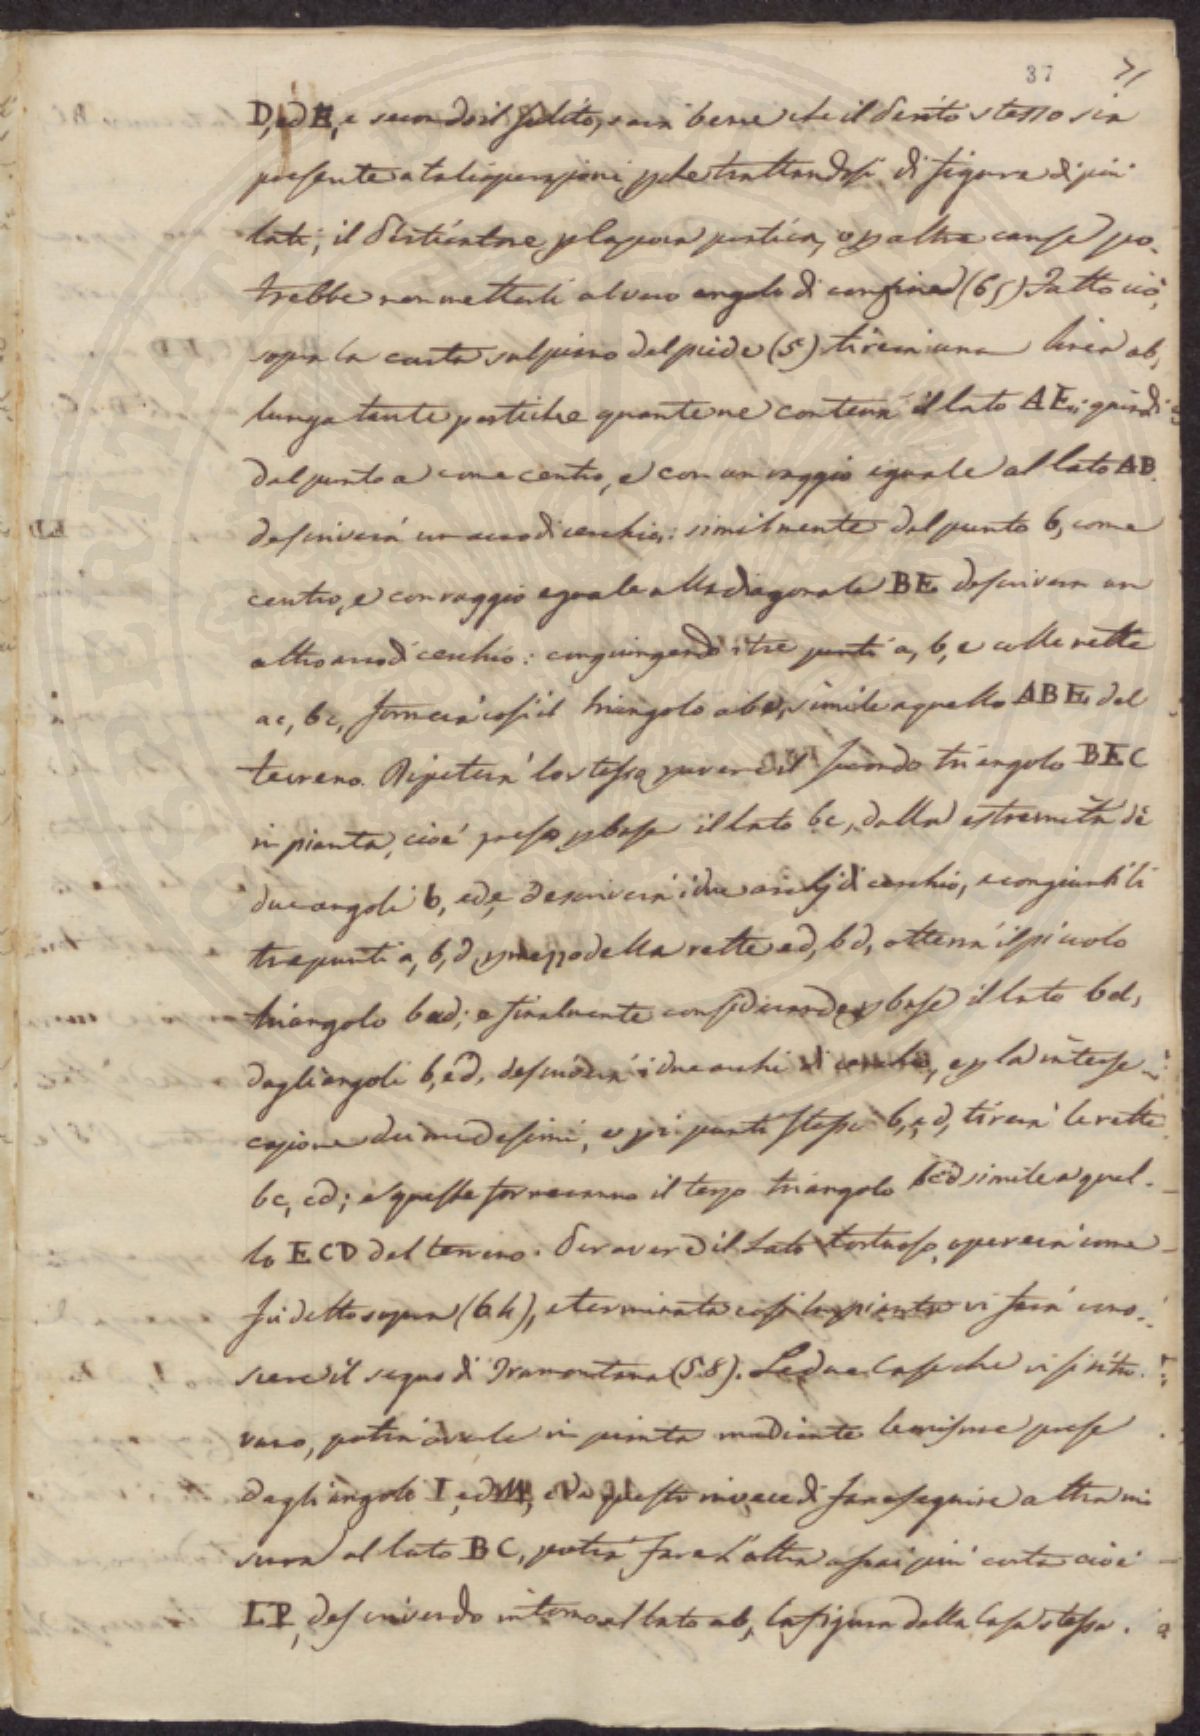 37 71
D, ed E, e secondo il solito, sarà bene che il perito stesso sia
presente a tali operazioni, pche trattandosi di figura di più
lati, il p la poca pratica, o p altra causa po-
trebbe non metterli al vero angolo di confine (65) Fatto ciò,
sopra la carta sul piano del piede (5) tirerà una linea ab,
lunga tante pertiche quante ne conterrà il lato AE, quindi
dal punto a come centro, e con un raggio eguale al lato AB
descriverà un arco di cerchio: similmente dal punto b, come
centro, e con raggio eguale alla diagonale BE descriverà un
altro arco di cerchio: congiungendo i tre punti a, b, e colle rette
ae, be, formerà così il triangolo abe, simile a quello ABE del
terreno. Ripeterà lo stesso p avere il secondo triangolo BEC
in pianta, cioè preso p base il lato be, dalla estremità dè
due angoli b, ed e descriverà i due archi di cerchio, e congiunti li
tre punti a, b, d, p mezzo delle rette ed, bd, otterrà il piccolo
triangolo bed; e finalmente considerando p base il lato bd,
dagli angoli b, e d, descriverà i due archi di cerchio, e p la interse-
cazione dei medesimi, e p i punti stessi b, e d, tirerà le rette
bc, cd; e queste formeranno il terzo triangolo bcd simile a quel-
lo ECD del terreno. Per avere il lato tortuoso, opererà come
fù detto sopra (64), e terminata così la pianta vi farà cono-
scere il segno di Tramontana (58). Le due Case che vi si ritro-
vano, potrà averle in pianta mediante le misure prese
dagli angoli I, ed M, e da questo invece di fare eseguire altra mi
sura al lato BC, potrà fare l'altra assai più corta cioè
LP, descrivendo intorno al lato ab, la figura della Casa stessa.